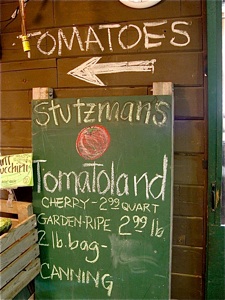 TOMATOES
Stutzman's
Tomatoland
CHERRY - 2.99 QUART
GARDEN-RIPE 2.99 lb
2 lb. bag-
CANNING